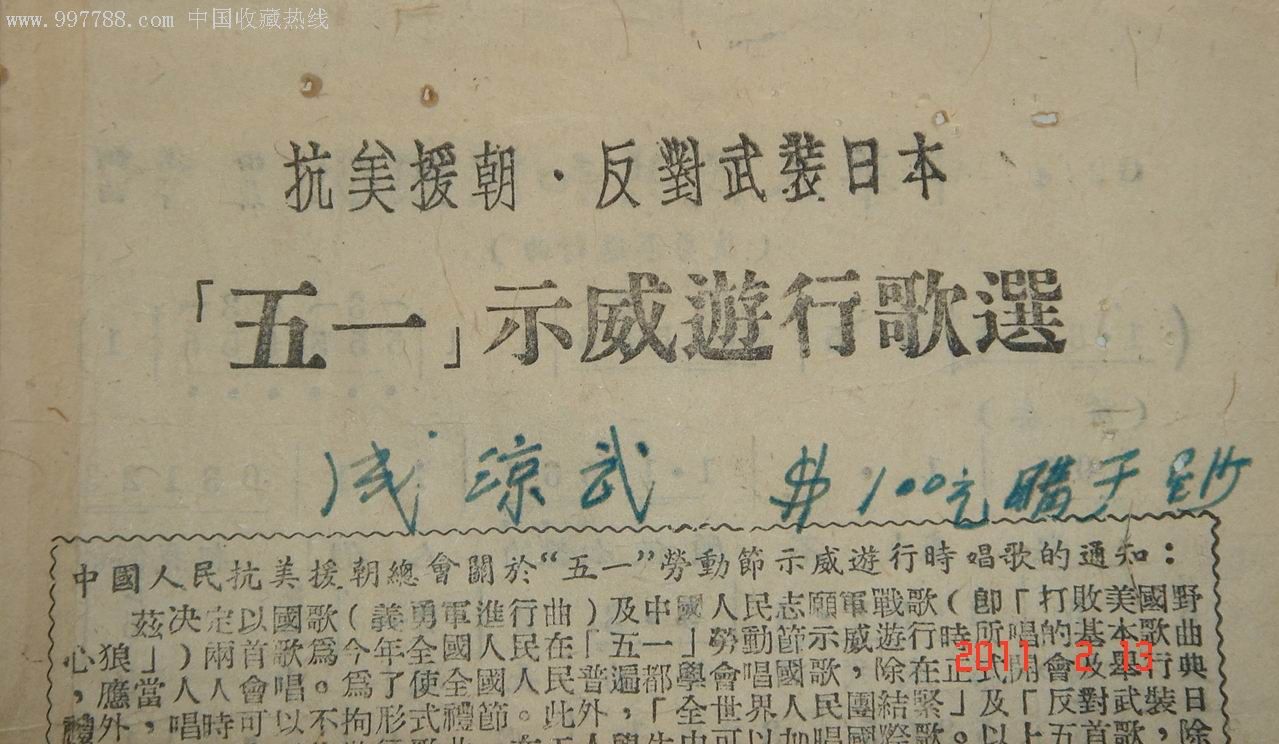 www.997788.com 中国收藏热线
抗美援朝·反對武裝日本
「五一」示威遊行歌選
涼武 $100元購于
中國人民抗美援朝總會關於“五一”勞動節示威遊行時唱歌的通知：
茲决定以國歌（義勇軍進行曲）及中國人民志願軍戰歌（卽「打敗美國野
心狼」）兩首歌爲今年全國人民在「五一」勞動節示威遊行時所唱的基本歌曲
，應當人人會唱。爲了使全國人民普遍都學會唱國歌，除在正式開會及舉行典
禮外，唱時可以不拘形式禮節。此外，「全世界人民團結緊」及「反對武裝日
以上五首歌，除
2011 2 13